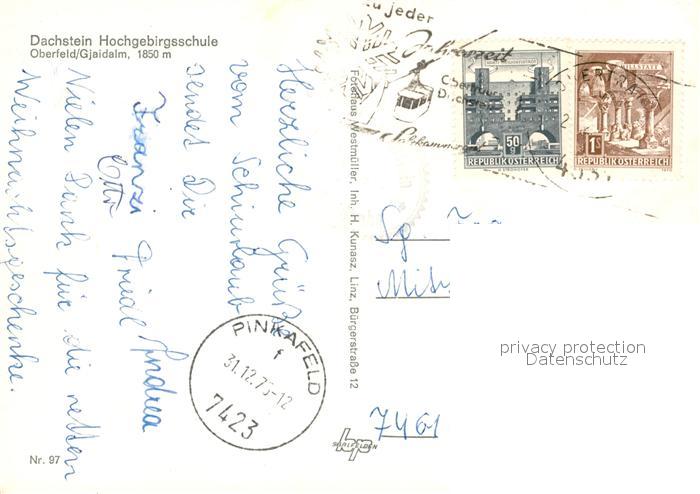 Dachstein Hochgebirgsschule
Oberfeld/Gjaidalm, 1850 m
Herzliche Grüße
vom Schiurlaub
sendet Dir
Franzi Friedl Andrea
Otto
Vielen Dank für die netten
Weihnachtsgeschenke.
Nr. 97
Fotohaus Westmüller, Inh. H. Kunasz, Linz, Bürgerstraße 12
zu jeder
Jahreszeit
Dachstein
Salzkammergut
50 g
REPUBLIK ÖSTERREICH
MILLSTATT
1 S
REPUBLIK ÖSTERREICH
OBERTRAUN
PINKAFELD
f
31.12.75-12
7423
Sg.
7461
bp
SAALFELDEN
privacy protection
Datenschutz